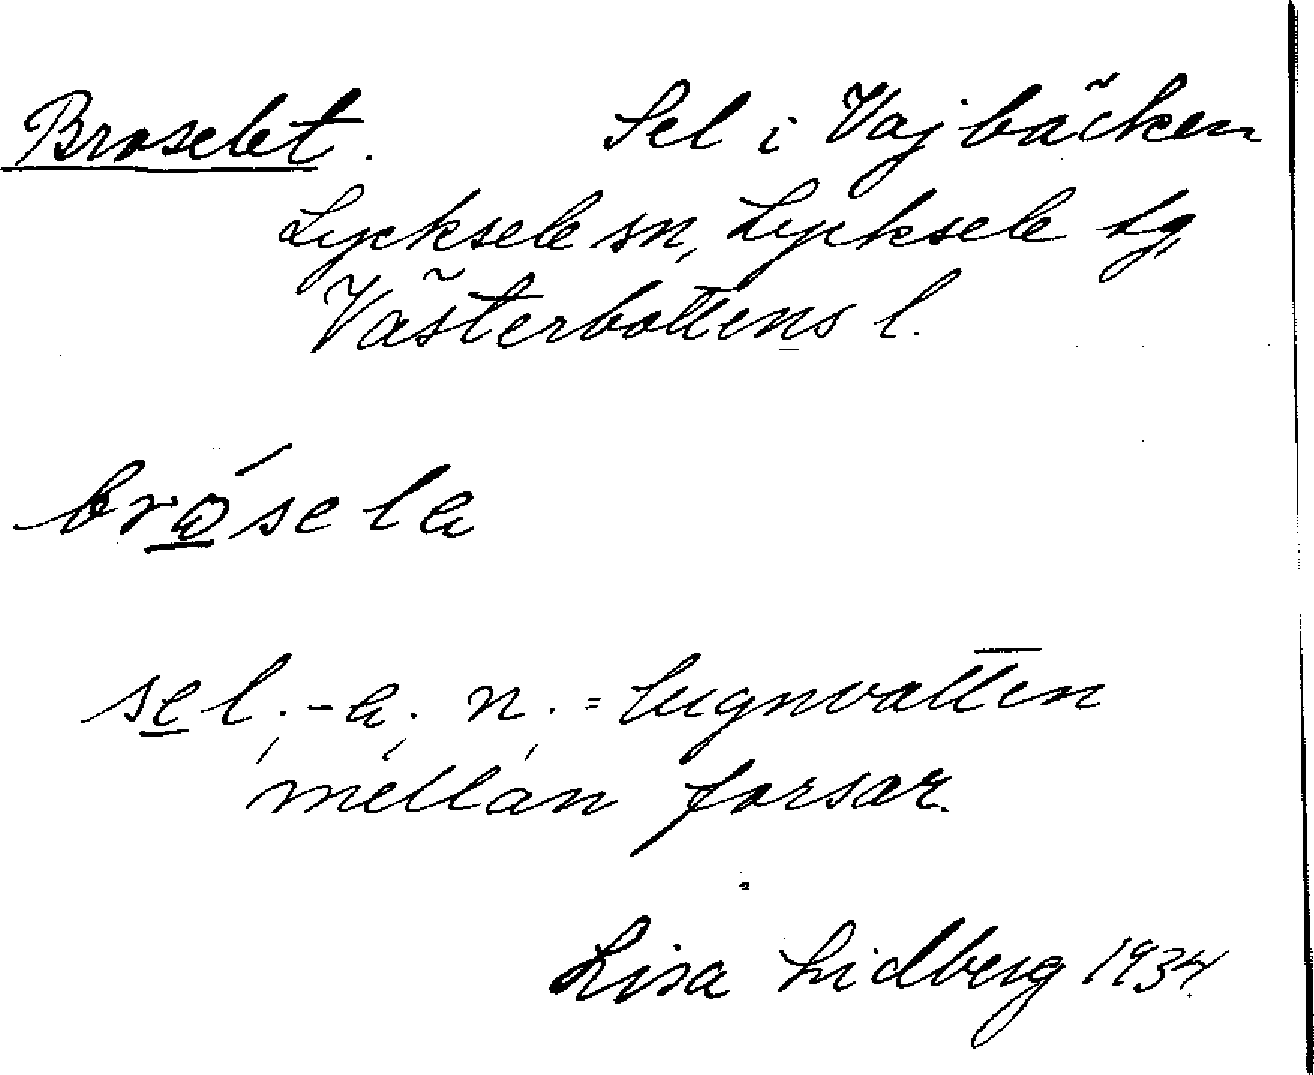 Broselet. Sel i Vajbäcken
Lycksele sn, Lycksele lg,
Västerbottens l.
brǫ́sela
sel. -a. n. = lugnvatten
mellan forsar.
Lisa Lidberg 1934.